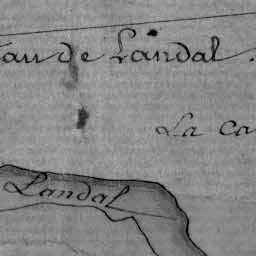 au de Landal.
La Ca
Landal